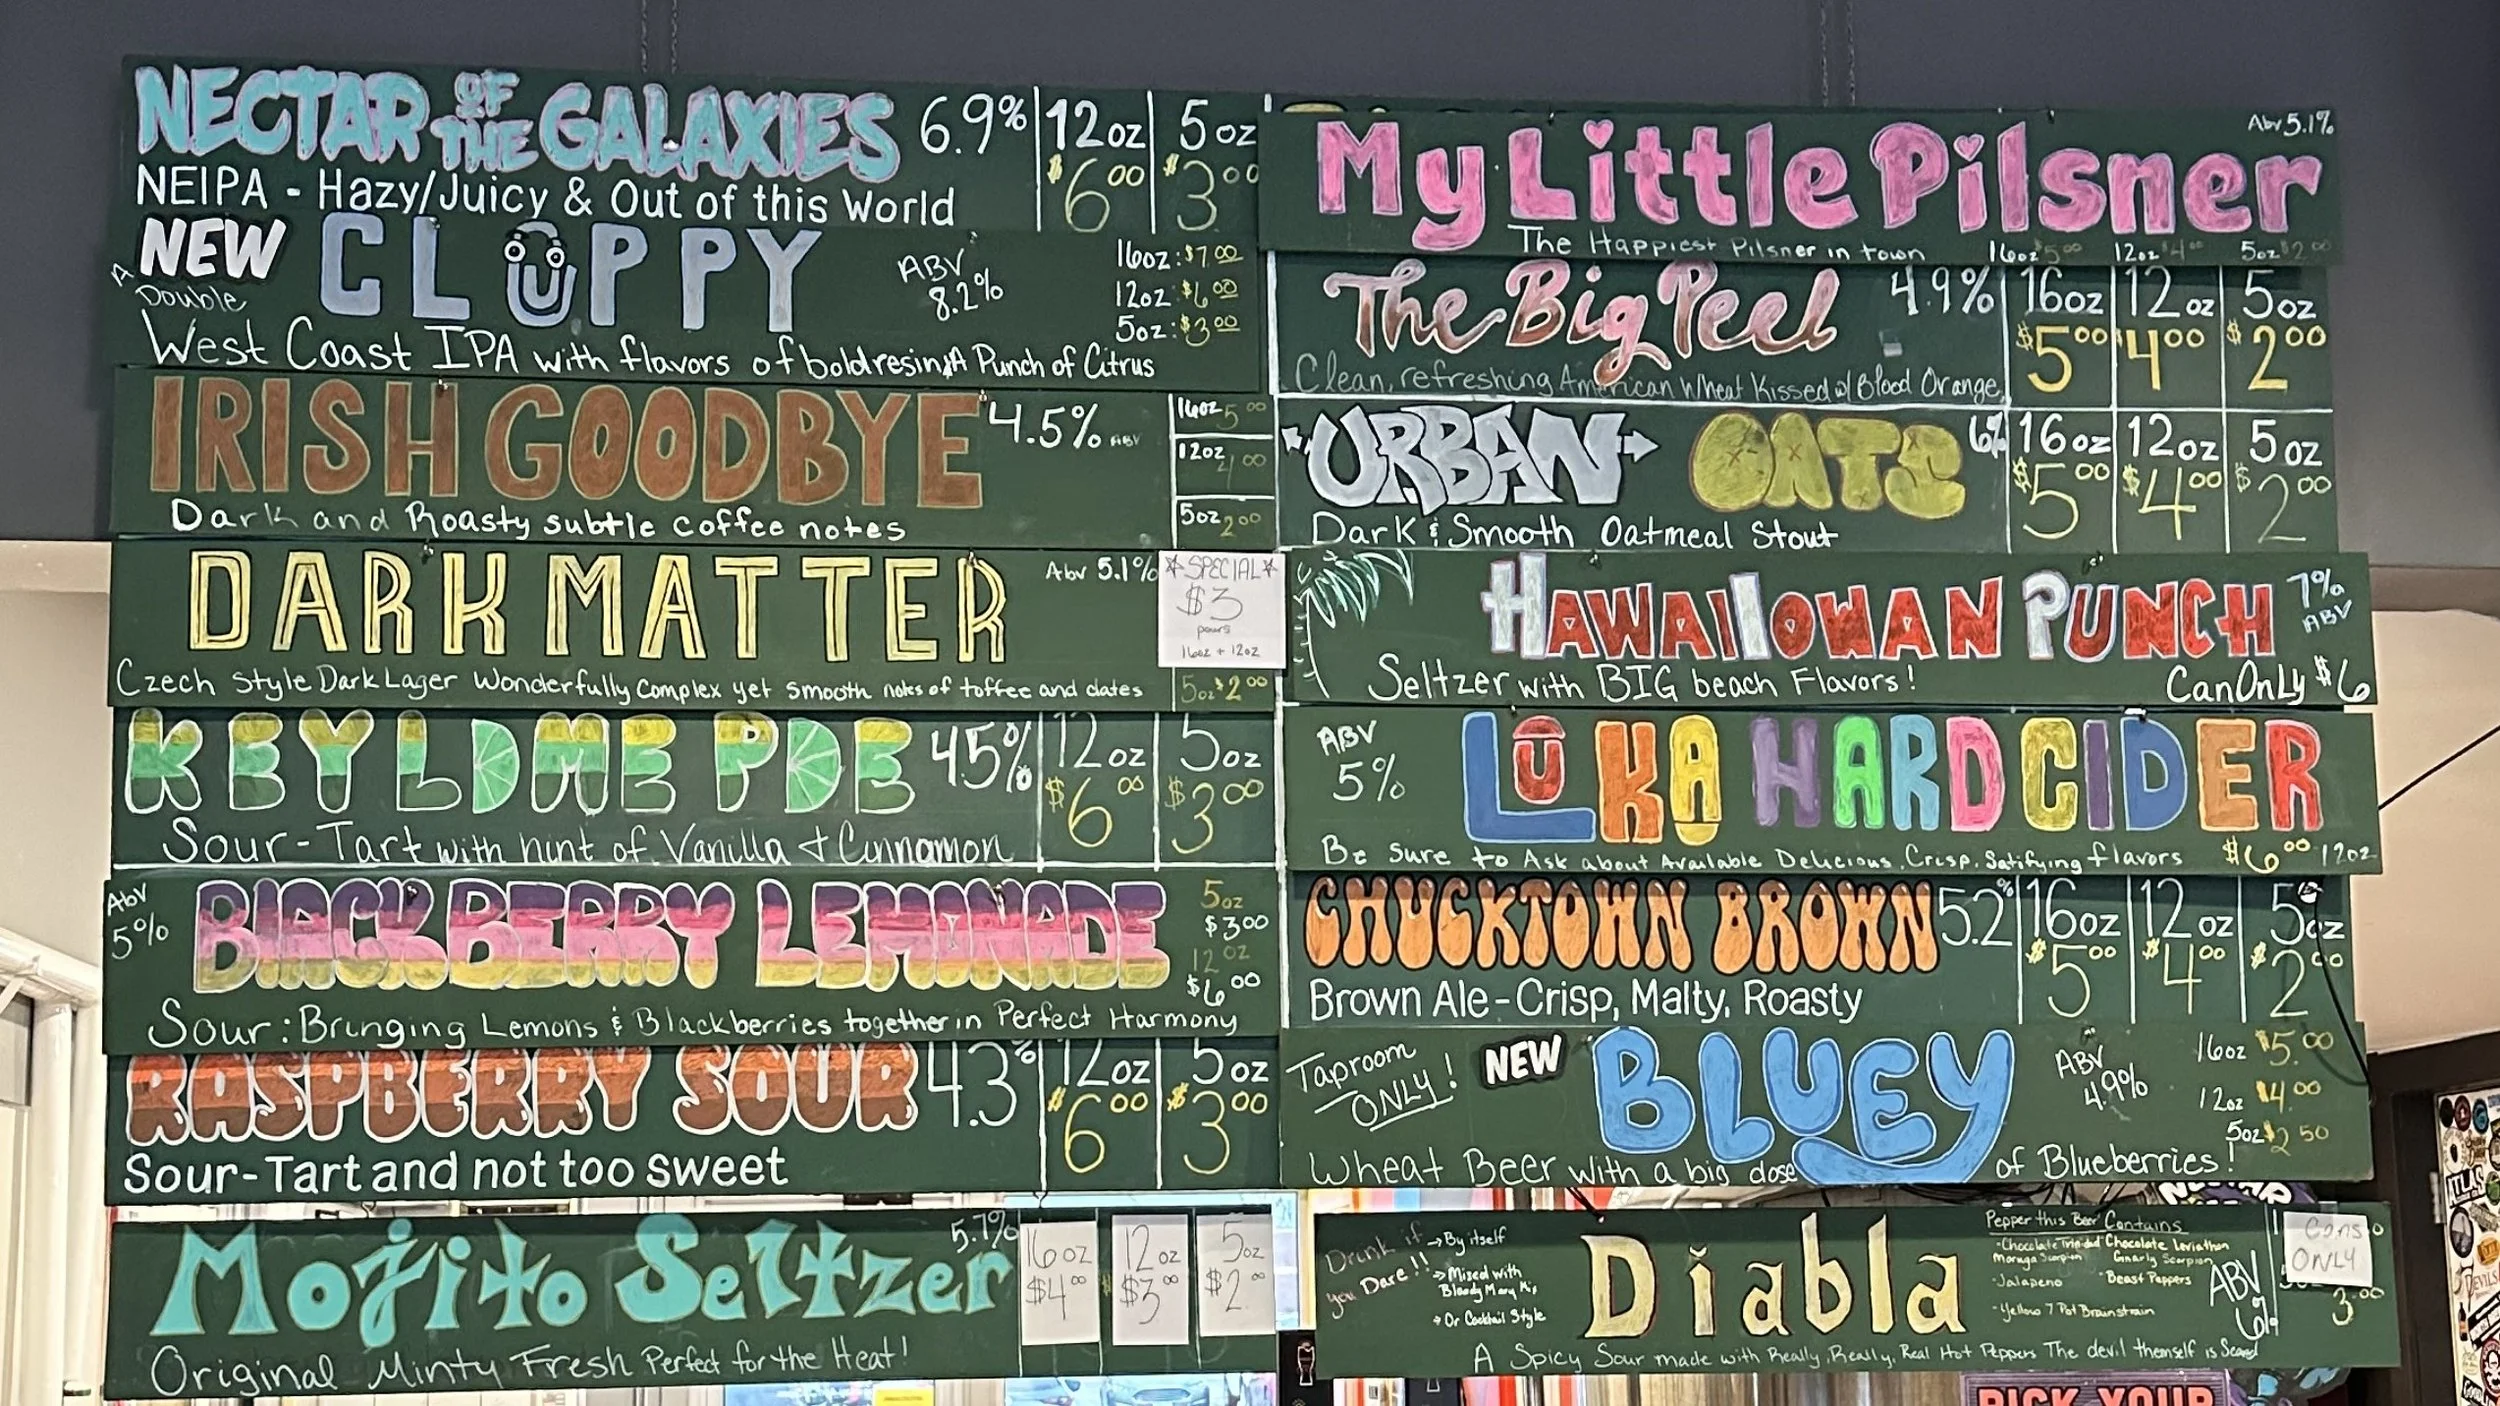 NECTAR OF THE GALAXIES 6.9% 12oz 5oz
$6.00 $3.00
NEIPA - Hazy/Juicy & Out of this World
NEW CLIPPY ABV 8.2%
A Double
16oz: $7.00
12oz: $6.00
5oz: $3.00
West Coast IPA with flavors of bold resin, A Punch of Citrus
IRISH GOODBYE 4.5% ABV
16oz 5.00
12oz 4.00
5oz 2.00
Dark and Roasty subtle coffee notes
DARK MATTER Abv 5.1%
★SPECIAL★
$3
pours
16oz + 12oz
5oz $2.00
Czech Style Dark Lager Wonderfully Complex yet smooth notes of toffee and dates
KEY LIME PIE 4.5% 12oz 5oz
$6.00 $3.00
Sour-Tart with hint of Vanilla & Cinnamon
Abv 5% BLACKBERRY LEMONADE
5oz
$3.00
12oz
$6.00
Sour: Bringing Lemons & Blackberries together in Perfect Harmony
RASPBERRY SOUR 4.3% 12oz 5oz
$6.00 $3.00
Sour-Tart and not too sweet
Mojito Seltzer 5.7% 16oz 12oz 5oz
$4.00 $3.00 $2.00
Original Minty Fresh Perfect for the Heat!
My Little Pilsner Abv 5.1%
The Happiest Pilsner in town 16oz $5.00 12oz $4.00 5oz $2.00
The Big Peel 4.9% 16oz 12oz 5oz
$5.00 $4.00 $2.00
Clean, refreshing American Wheat Kissed w/ Blood Orange
URBAN OATS 6% 16oz 12oz 5oz
$5.00 $4.00 $2.00
Dark & Smooth Oatmeal Stout
HAWAIIOWAN PUNCH 7% ABV
Seltzer with BIG beach Flavors! Can Only $6
ABV 5% LUKA HARD CIDER
Be sure to Ask about Available Delicious, Crisp, Satifying flavors $6.00 12oz
CHUCKTOWN BROWN 5.2% 16oz 12oz 5oz
$5.00 $4.00 $2.00
Brown Ale - Crisp, Malty, Roasty
Taproom ONLY! NEW BLUEY ABV 4.9%
16oz $5.00
12oz $4.00
5oz $2.50
Wheat Beer with a big dose of Blueberries!
Drink if you Dare!!
→By itself
→Mixed with Bloody Mary Mix
→Or Cocktail Style
Diabla
Pepper this Beer Contains
-Chocolate Trinidad Moruga Scorpion
Chocolate Leviathan Gnarly Scorpion
-Jalapeno
-Beast Peppers
-Yellow 7 Pot Brainstrain
ABV 6%
Cans ONLY
3.00
A Spicy Sour made with Really, Really, Real Hot Peppers The devil themself is Scared
ATLAS
DEVILS
PICK YOUR